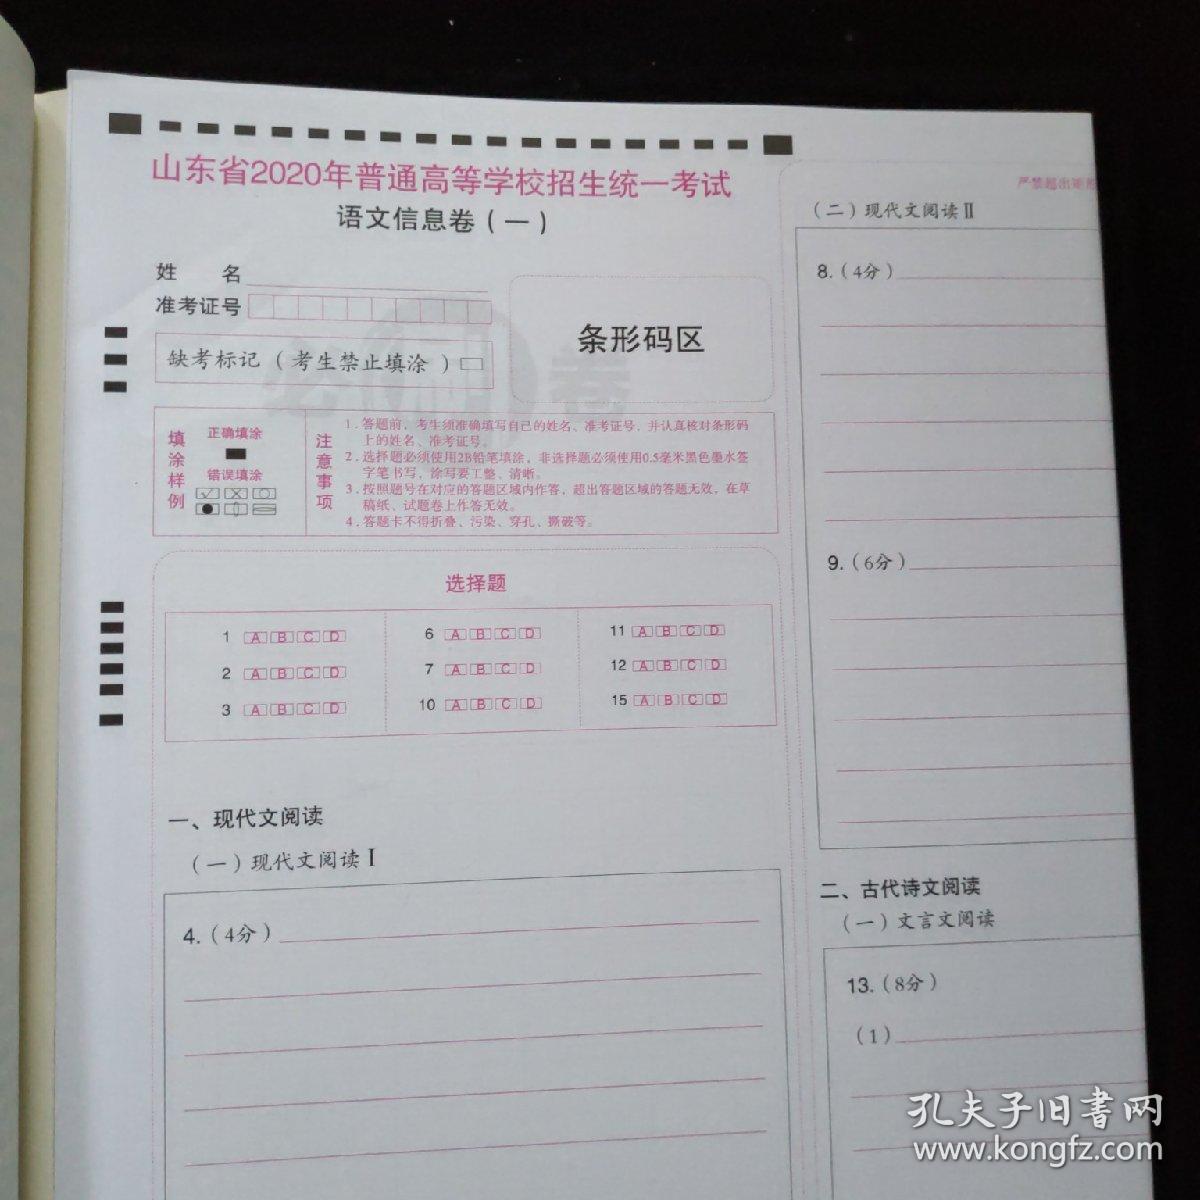 山东省2020年普通高等学校招生统一考试
语文信息卷(一)
姓 名
准考证号
缺考标记(考生禁止填涂)
条形码区
填涂样例
正确填涂
错误填涂
注意事项
1.答题前,考生须准确填写自己的姓名、准考证号,并认真核对条形码
上的姓名、准考证号。
2.选择题必须使用2B铅笔填涂,非选择题必须使用0.5毫米黑色墨水签
字笔书写,涂写要工整、清晰。
3.按照题号在对应的答题区域内作答,超出答题区域的答题无效,在草
稿纸、试题卷上作答无效。
4.答题卡不得折叠、污染、穿孔、撕破等。
选择题
1 A B C D
2 A B C D
3 A B C D
6 A B C D
7 A B C D
10 A B C D
11 A B C D
12 A B C D
15 A B C D
一、现代文阅读
(一)现代文阅读Ⅰ
4.(4分)
严禁超出矩形
(二)现代文阅读Ⅱ
8.(4分)
9.(6分)
二、古代诗文阅读
(一)文言文阅读
13.(8分)
(1)
孔夫子旧书网
www.kongfz.com